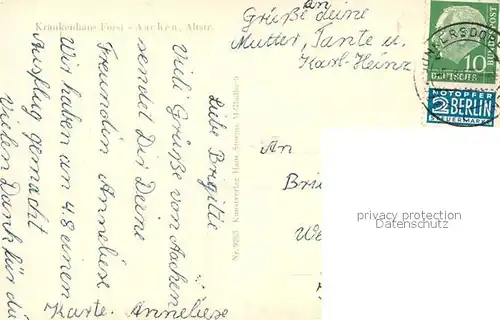 Krankenhaus Forst - Aachen, Altstr.
Grüße an deine
Mutter, Tante u.
Karl-Heinz
Liebe Brigitte
Viele Grüße von Aachen
sendet Dir Deine
Freundin Anneliese
Wir haben am 4.8 einen
Ausflug gemacht
Vielen Dank für die
Karte. Anneliese
Nr. 9265 Kunstverlag Hans Storms
An
Bri
We
10
DEUTSCHE
BUNDESPOST
NOTOPFER
2 BERLIN
STEUERMARKE
privacy protection
Datenschutz